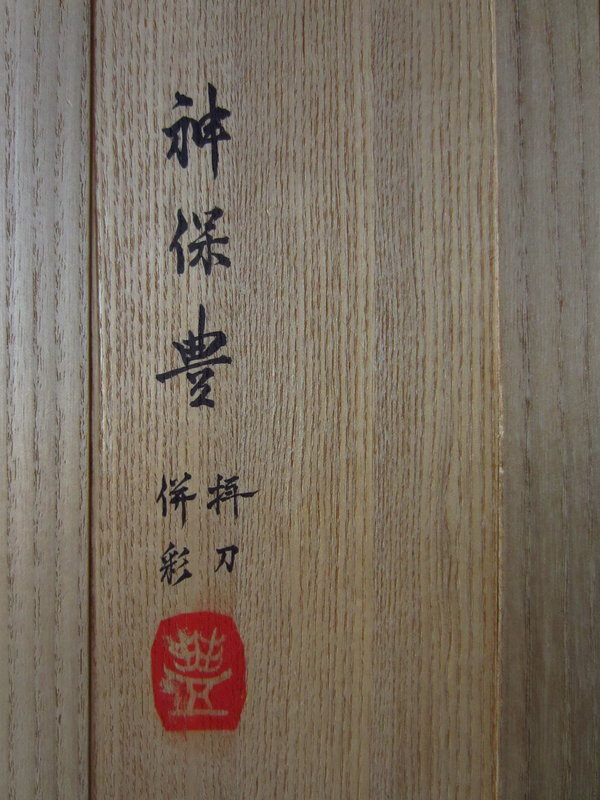 神保豊
拝刀
併彩
豊